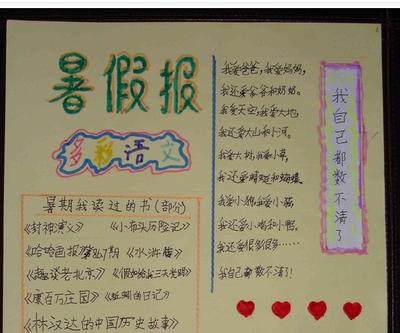 暑假报
多彩语文
暑期我读过的书(部分)
《封神演义》 《小布头历险记》
《哈哈画报》第867期 《水浒传》
《趣谈老北京》 《假如给我三天光明》
《康百万庄园》 《蚯蚓的日记》
《林汉达的中国历史故事》
我爱爸爸,我爱妈妈,
我还爱爷爷和奶奶。
我爱天空,我爱大地,
我还爱大山和小河。
我爱大树,我爱小草,
我还爱蜻蜓和蝴蝶。
我爱小猫,我爱小狗,
我还爱小鸡和小鸭。
我还爱很多很多……
我自己都数不清!
我自己都数不清了